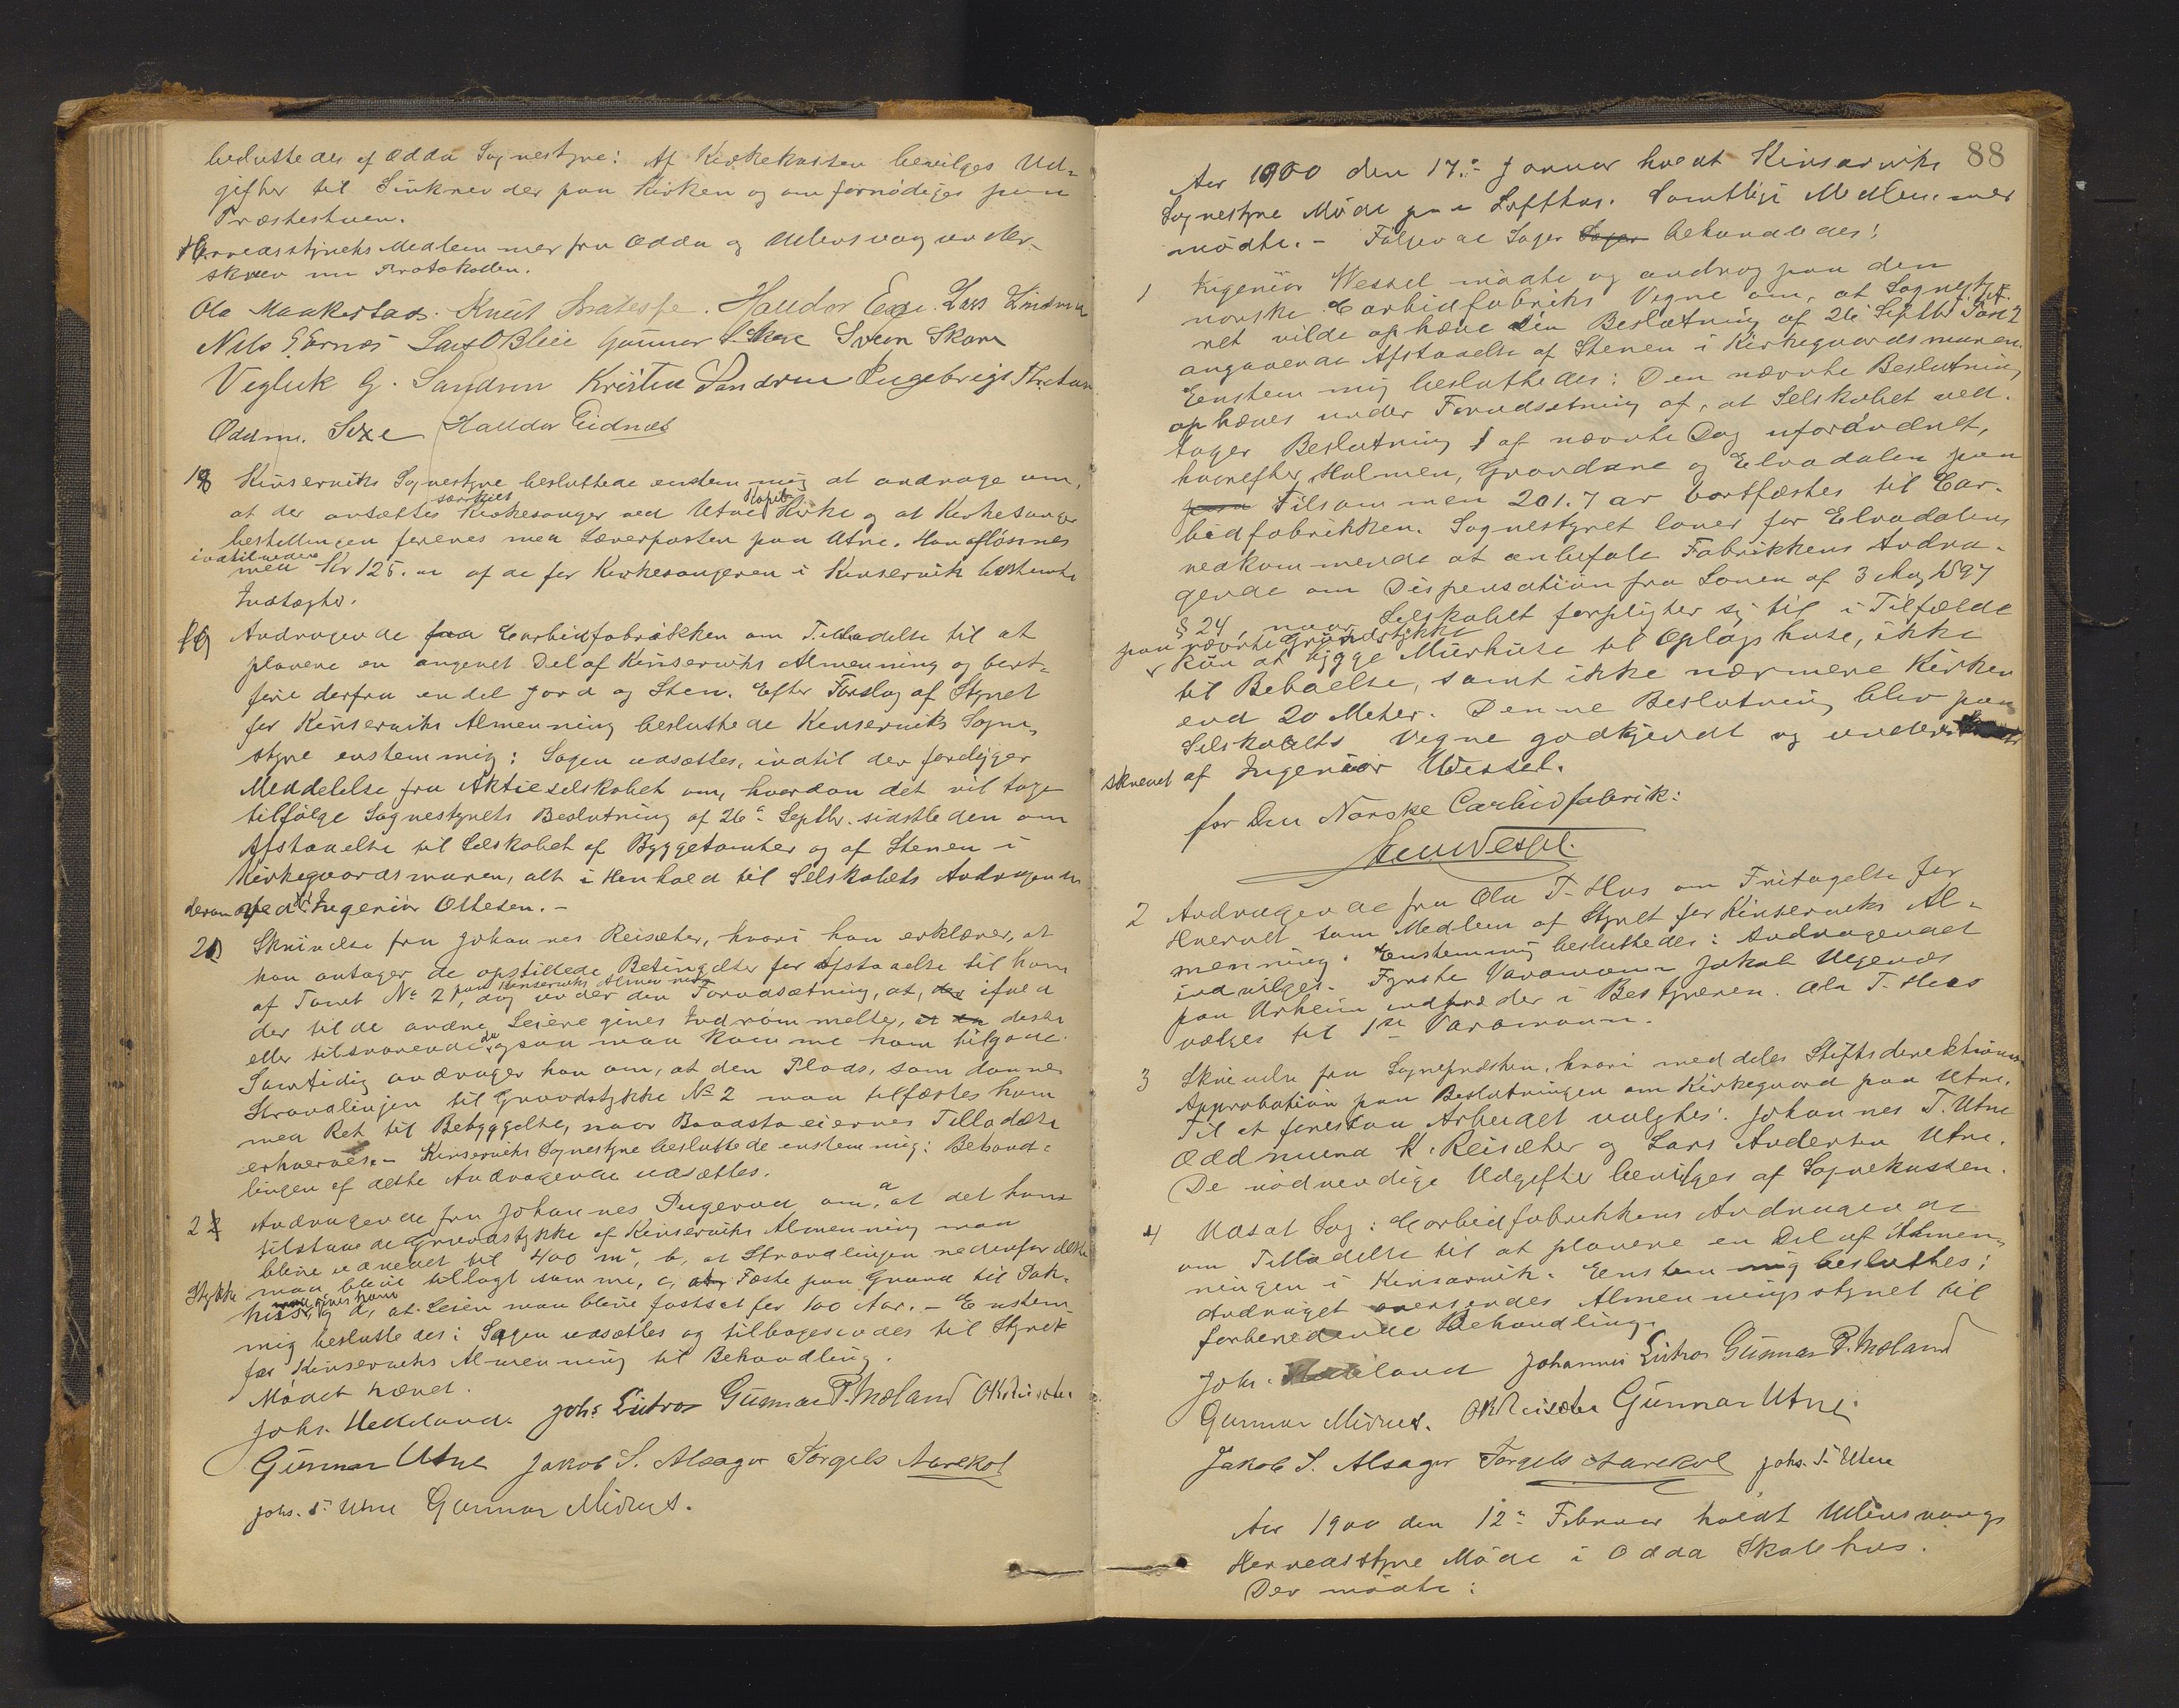 besluttedes af Odda Sognestyre: Af Kirkekassen bevilges Ud-
gifter til Sinkrender paa Kirken og om fornödiges paa
Præstestuen.
Herredsstyrets Medlemmer fra Odda og Ullensvang under-
skrev nu Protokollen.
Ola Maakestad. Knut Halldor Eage. Lars
Nils E. Ernæs Lars O Bleie Gunnar Skare Sven Skare
Vegleik G. Sandven Kristen Sandven Ingebrigt
Oddm. Sexe Halldor Eidnæs
18 Kinserviks Sognestyre besluttede enstemmig at andrage om,
at der ansættes særskilt Kirkesanger ved Utne Kapel Kirke og at Kirkesanger
bestillingen forenes med Lærerposten paa Utne. Han aflönnes
indtilvidere med Kr 125.00 af de for Kirkesangeren i Kinservik bestemte
Indtægter.
19 Andragende fra Carbidfabrikken om Tilladelse til at
planere en angivet Del af Kinserviks Almenning og bort-
føre derfra endel Jord og Sten. Efter Forslag af Styret
for Kinserviks Almenning besluttede Kinserviks Sogne-
styre enstemmig: Sagen udsættes, indtil der foreligger
Meddelelse fra Aktieselskabet om, hvordan det vil tage
tilfölge Sognestyrets Beslutning af 26de Septbr. sidstleden om
Afstaaelse til Selskabet af Byggetomter og af Stenen i
Kirkegaardsmuren, alt i Henhold til Selskabets Andragende
derom ved Hr. Ingeniör Ottesen. -
20 Skrivelse fra Johannes Reisæter, hvori han erklærer, at
han antager de opstillede Betingelser for Afstaaelse til ham
af Tomt No 2 paa Kinserviks Almenning, dog under den Forudsætning, at, der ifald
der til de andre Leiere gives Indrömmelse, at en deslige
eller tilsvarende da ogsaa maa komme ham tilgode.
Samtidig andrager han om, at den Plads, som danner
Strandlinjen til Grundstykke No 2 maa tilfæstes ham
med Ret til Bebyggelse, naar Baadstøeiernes Tilladelse
erhverves. - Kinserviks Sognestyre besluttede enstemmig: Behand-
lingen af dette Andragende udsættes.
21 Andragende fra Johannes Ingerud om, a at det ham
tilstaaede Grundstykke af Kinserviks Almenning maa
blive udvidet til 400 m², b, at Strandlinjen nedenfor dette
Stykke maa blive tillagt samme, c, at Fæste paa Grund til Pak-
hus maa gives ham og d, at Leien maa blive fastsat for 100 Aar. - Enstem-
mig besluttedes: Sagen udsættes og tilbagesendes til Styret
for Kinserviks Almenning til Behandling.
Mödet hævet.
Johs. Helleland. Johs Lutro Gunnar P. Mæland OKReisæter
Gunnar Utne Jakob S. Alsager Torgels Aarekol
Johs. T. Utne Gunnar Midnes.
88
Aar 1900 den 17de Januar holdt Kinserviks
Sognestyre Möde paa Lofthus. Samtlige Medlemmer
mödte. - Følgende Sager Sager behandledes:
1 Ingeniör Wessel mödte og androg paa den
norske Carbidfabriks Vegne om, at Sognesty-
ret vilde ophæve sin Beslutning af 26 Septbr Post 2
angaaende Afstaaelse af Stenen i Kirkegaardsmuren.
Enstemmig besluttedes: Den nævnte Beslutning
ophæves under Forudsætning af, at Selskabet ved-
tager Beslutning 1 af nævnte Dag uforandret,
hvorefter Holmen, Grandane og Elvadalen paa
paa Tilsammen 201.7 ar bortfæstes til Car-
bidfabrikken. Sognestyret lover for Elvadalens
vedkommende at anbefale Fabrikkens Andra-
gende om Dispensation fra Loven af 3 Aug 1897
§ 24, naar Selskabet forpligter sig til i Tilfælde
paa nævnte Grundstykke
kun at bygge Murhuse til Oplagshuse, ikke
til Beboelse, samt ikke nærmere Kirken
end 20 Meter. Denne Beslutning blev paa
Selskabets Vegne godkjendt og under-
skrevet af Ingeniör Wessel.
for Den Norske Carbidfabrik:
Wessel.
2 Andragende fra Ola T. Hus om Fritagelse for
Hvervet som Medlem af Styret for Kinserviks Al-
menning. Enstemmig besluttedes: Andragendet
indvilges. Fyrste Varamann Jakob Ulgenæs
paa Urheim indtræder i Bestyrelsen. Ola T. Hus
vælges til 1ste Varamann.
3 Skrivelse fra Sognepræsten, hvori meddeles Stiftsdirektionens
Approbation paa Beslutningen om Kirkegaard paa Utne.
Til at forestaa Arbeidet valgtes: Johannes T. Utne
Oddmund K. Reisæter og Lars Andersen Utne.
De nödvendige Udgifter bevilges af Sognekassen.
4 Udsat Sag: Carbidfabrikkens Andragende
om Tilladelse til at planere en Del af Almen-
ningen i Kinsarvik. Enstemmig besluttes:
Andraget oversendes Almenningsstyret til
forberedende Behandling.
Johs. Helleland Johannes Lutro Gunnar P. Mæland
Gunnar Midnes. OKReisæter Gunnar Utne.
Jakob S. Alsager Torgels Aarekol Johs. T. Utne
Aar 1900 den 12te Februar holdt Ullensvangs
Herredsstyre Möde i Odda Skolehus.
Der mödte: